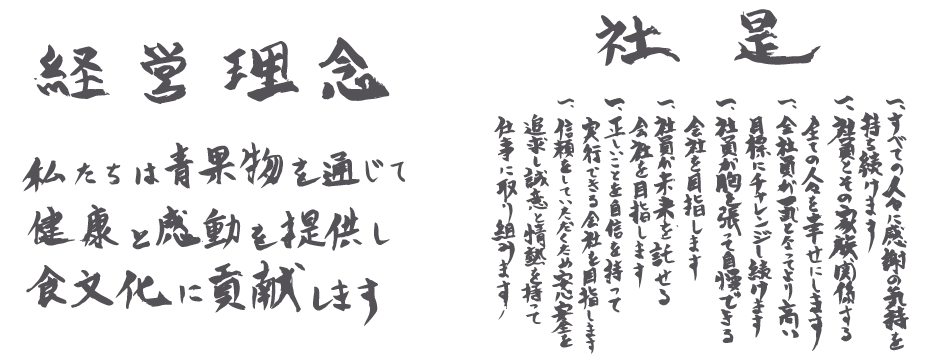 経営理念
私たちは青果物を通じて
健康と感動を提供し
食文化に貢献します
社是
一、すべての人々に感謝の気持を
持ち続けます
一、社員とその家族関係する
全ての人々を幸せにします
一、会社員が一気となってより高い
目標にチャレンジし続けます
一、社員が胸を張って自慢できる
会社を目指します
一、社員が未来を託せる
会社を目指します
一、正しいことを自信を持って
実行できる会社を目指します
一、信頼をしていただくため安心安全を
追求し誠意と情熱を持って
仕事に取り組みます